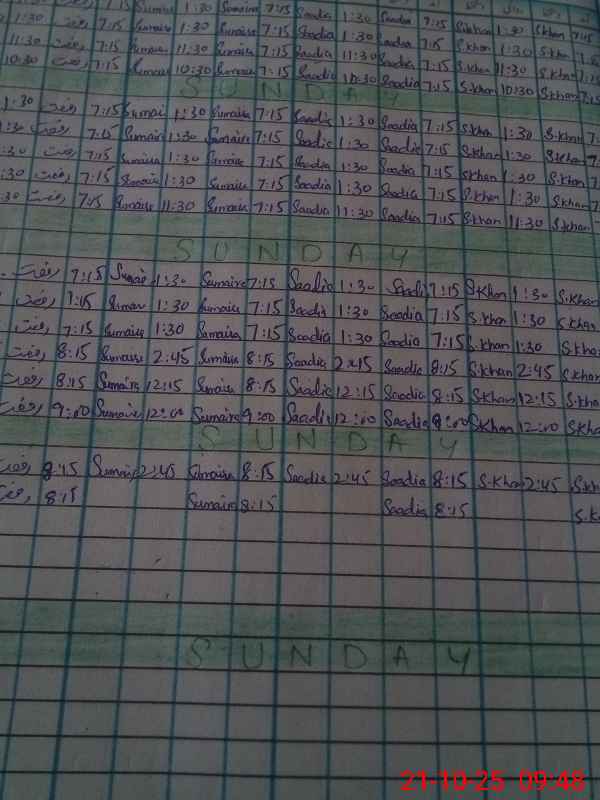 7:15 Sumaira 1:30 Sumaira 7:15 Saadia 1:30 Saadia 7:15 S.khan 1:30 S.khan 7:15
1:30 رفعت 7:15 Sumaira 1:30 Sumaira 7:15 Saadia 1:30 Saadia 7:15 S.khan 1:30 S.khan
11:30 رفعت 7:15 Sumaira 11:30 Sumaira 7:15 Saadia 11:30 Saadia 7:15 S.khan 11:30 S.khan
10:30 رفعت 7:15 Sumaira 10:30 Sumaira 7:15 Saadia 10:30 Saadia 7:15 S.khan 10:30 S.khan 7:15
SUNDAY
1:30 رفعت 7:15 Sumair 1:30 Sumaira 7:15 Saadia 1:30 Saadia 7:15 S.khan 1:30 S.khan 7:
1:30 رفعت 7:15 Sumaira 1:30 Sumaira 7:15 Saadia 1:30 Saadia 7:15 S.khan 1:30 S.khan 7:
:30 رفعت 7:15 Sumaira 1:30 Sumaira 7:15 Saadia 1:30 Saadia 7:15 S.khan 1:30 S.khan 7:
:30 رفعت 7:15 Sumaira 1:30 Sumaira 7:15 Saadia 1:30 Saadia 7:15 S.khan 1:30 S.khan 7
:30 رفعت 7:15 Sumaira 11:30 Sumaira 7:15 Saadia 11:30 Saadia 7:15 S.khan 11:30 S.khan 7
SUNDAY
رفعت 7:15 Sumair 1:30 Sumaira 7:15 Saadia 1:30 Saadi 7:15 S.Khan 1:30 S.Khan
رفعت 7:15 Sumair 1:30 Sumaira 7:15 Saadia 1:30 Saadia 7:15 S.khan 1:30 S.khan
رفعت 7:15 Sumaira 1:30 Sumaira 7:15 Saadia 1:30 Saadia 7:15 S.khan 1:30 S.khan
رفعت 8:15 Sumaira 2:45 Sumaira 8:15 Saadia 2:45 Saadia 8:15 S.khan 2:45 S.khan
رفعت 8:15 Sumaira 12:15 Sumaira 8:15 Saadia 12:15 Saadia 8:15 S.khan 12:15 S.kha
رفعت 9:00 Sumaira 12:00 Sumaira 9:00 Saadia 12:00 Saadia 8:00 S.Khan 12:00 S.Kha
SUNDAY
رفعت 8:15 Sumaira 2:45 Sumaira 8:15 Saadia 2:45 Saadia 8:15 S.khan 2:45 S.kh
رفعت 8:15 Sumaira 8:15 Saadia 8:15 S.K
SUNDAY
21-10-25 09:48